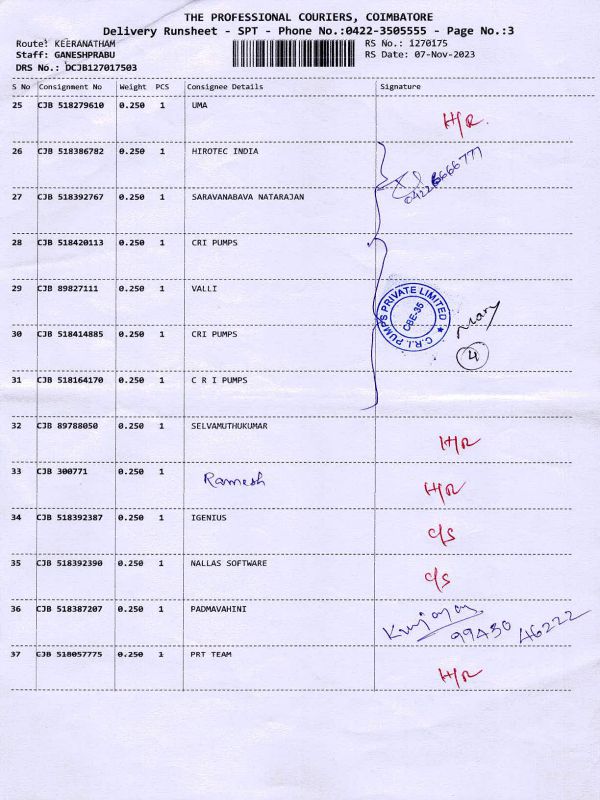 THE PROFESSIONAL COURIERS, COIMBATORE
Delivery Runsheet - SPT - Phone No.:0422-3505555 - Page No.:3
Route: KEERANATHAM RS No.: 1270175
Staff: GANESHPRABU RS Date: 07-Nov-2023
DRS No.: DCJB127017503
S No Consignment No Weight PCS Consignee Details Signature
25 CJB 518279610 0.250 1 UMA H/R.
26 CJB 518386782 0.250 1 HIROTEC INDIA
04226666777
27 CJB 518392767 0.250 1 SARAVANABAVA NATARAJAN
28 CJB 518420113 0.250 1 CRI PUMPS
29 CJB 89827111 0.250 1 VALLI
C.R.I. PUMPS PRIVATE LIMITED ★
CBE-35
Mary
30 CJB 518414885 0.250 1 CRI PUMPS
4
31 CJB 518164170 0.250 1 C R I PUMPS
32 CJB 89788050 0.250 1 SELVAMUTHUKUMAR H/R
33 CJB 300771 0.250 1 Ramesh H/R
34 CJB 518392387 0.250 1 IGENIUS C/S
35 CJB 518392390 0.250 1 NALLAS SOFTWARE C/S
36 CJB 518387207 0.250 1 PADMAVAHINI
99430 46222
37 CJB 518057775 0.250 1 PRT TEAM H/R